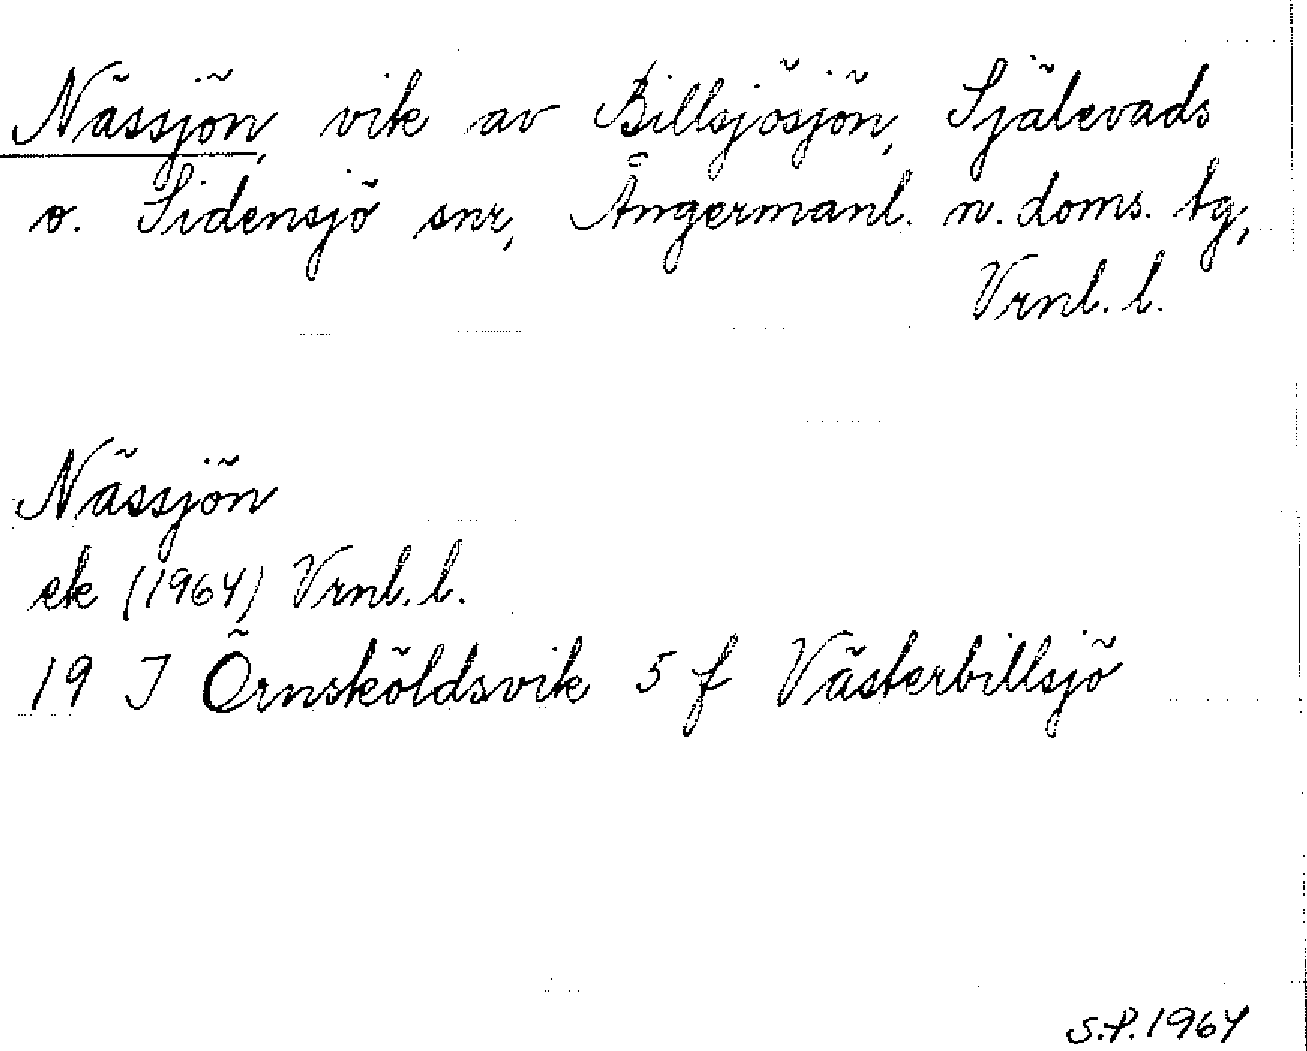 Nässjön, vik av Billsjösjön, Själevads
o. Sidensjö snr, Ångermanl. n. doms. tg,
Vrnl. l.
Nässjön
ek (1964) Vrnl. l.
19 J Örnsköldsvik 5 f Västerbillsjö
S.P. 1964